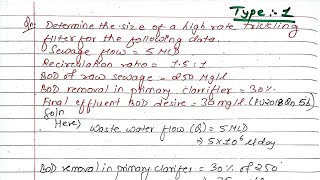 Type:-1
Qn: Determine the size of a high rate trickling
filter for the following data.
Sewage flow = 5 MLD
Recirculation ratio = 1.5:1
BOD of raw sewage = 250 mg/l
BOD removal in primary clarifier = 30%
Final effluent BOD desire = 30 mg/l. (PU2018 Qn. 5b)
Soln
Here,
Waste water flow (Q) = 5 MLD
⇒ 5×10⁶ l/day
BOD removal in primary clarifer = 30% of 250